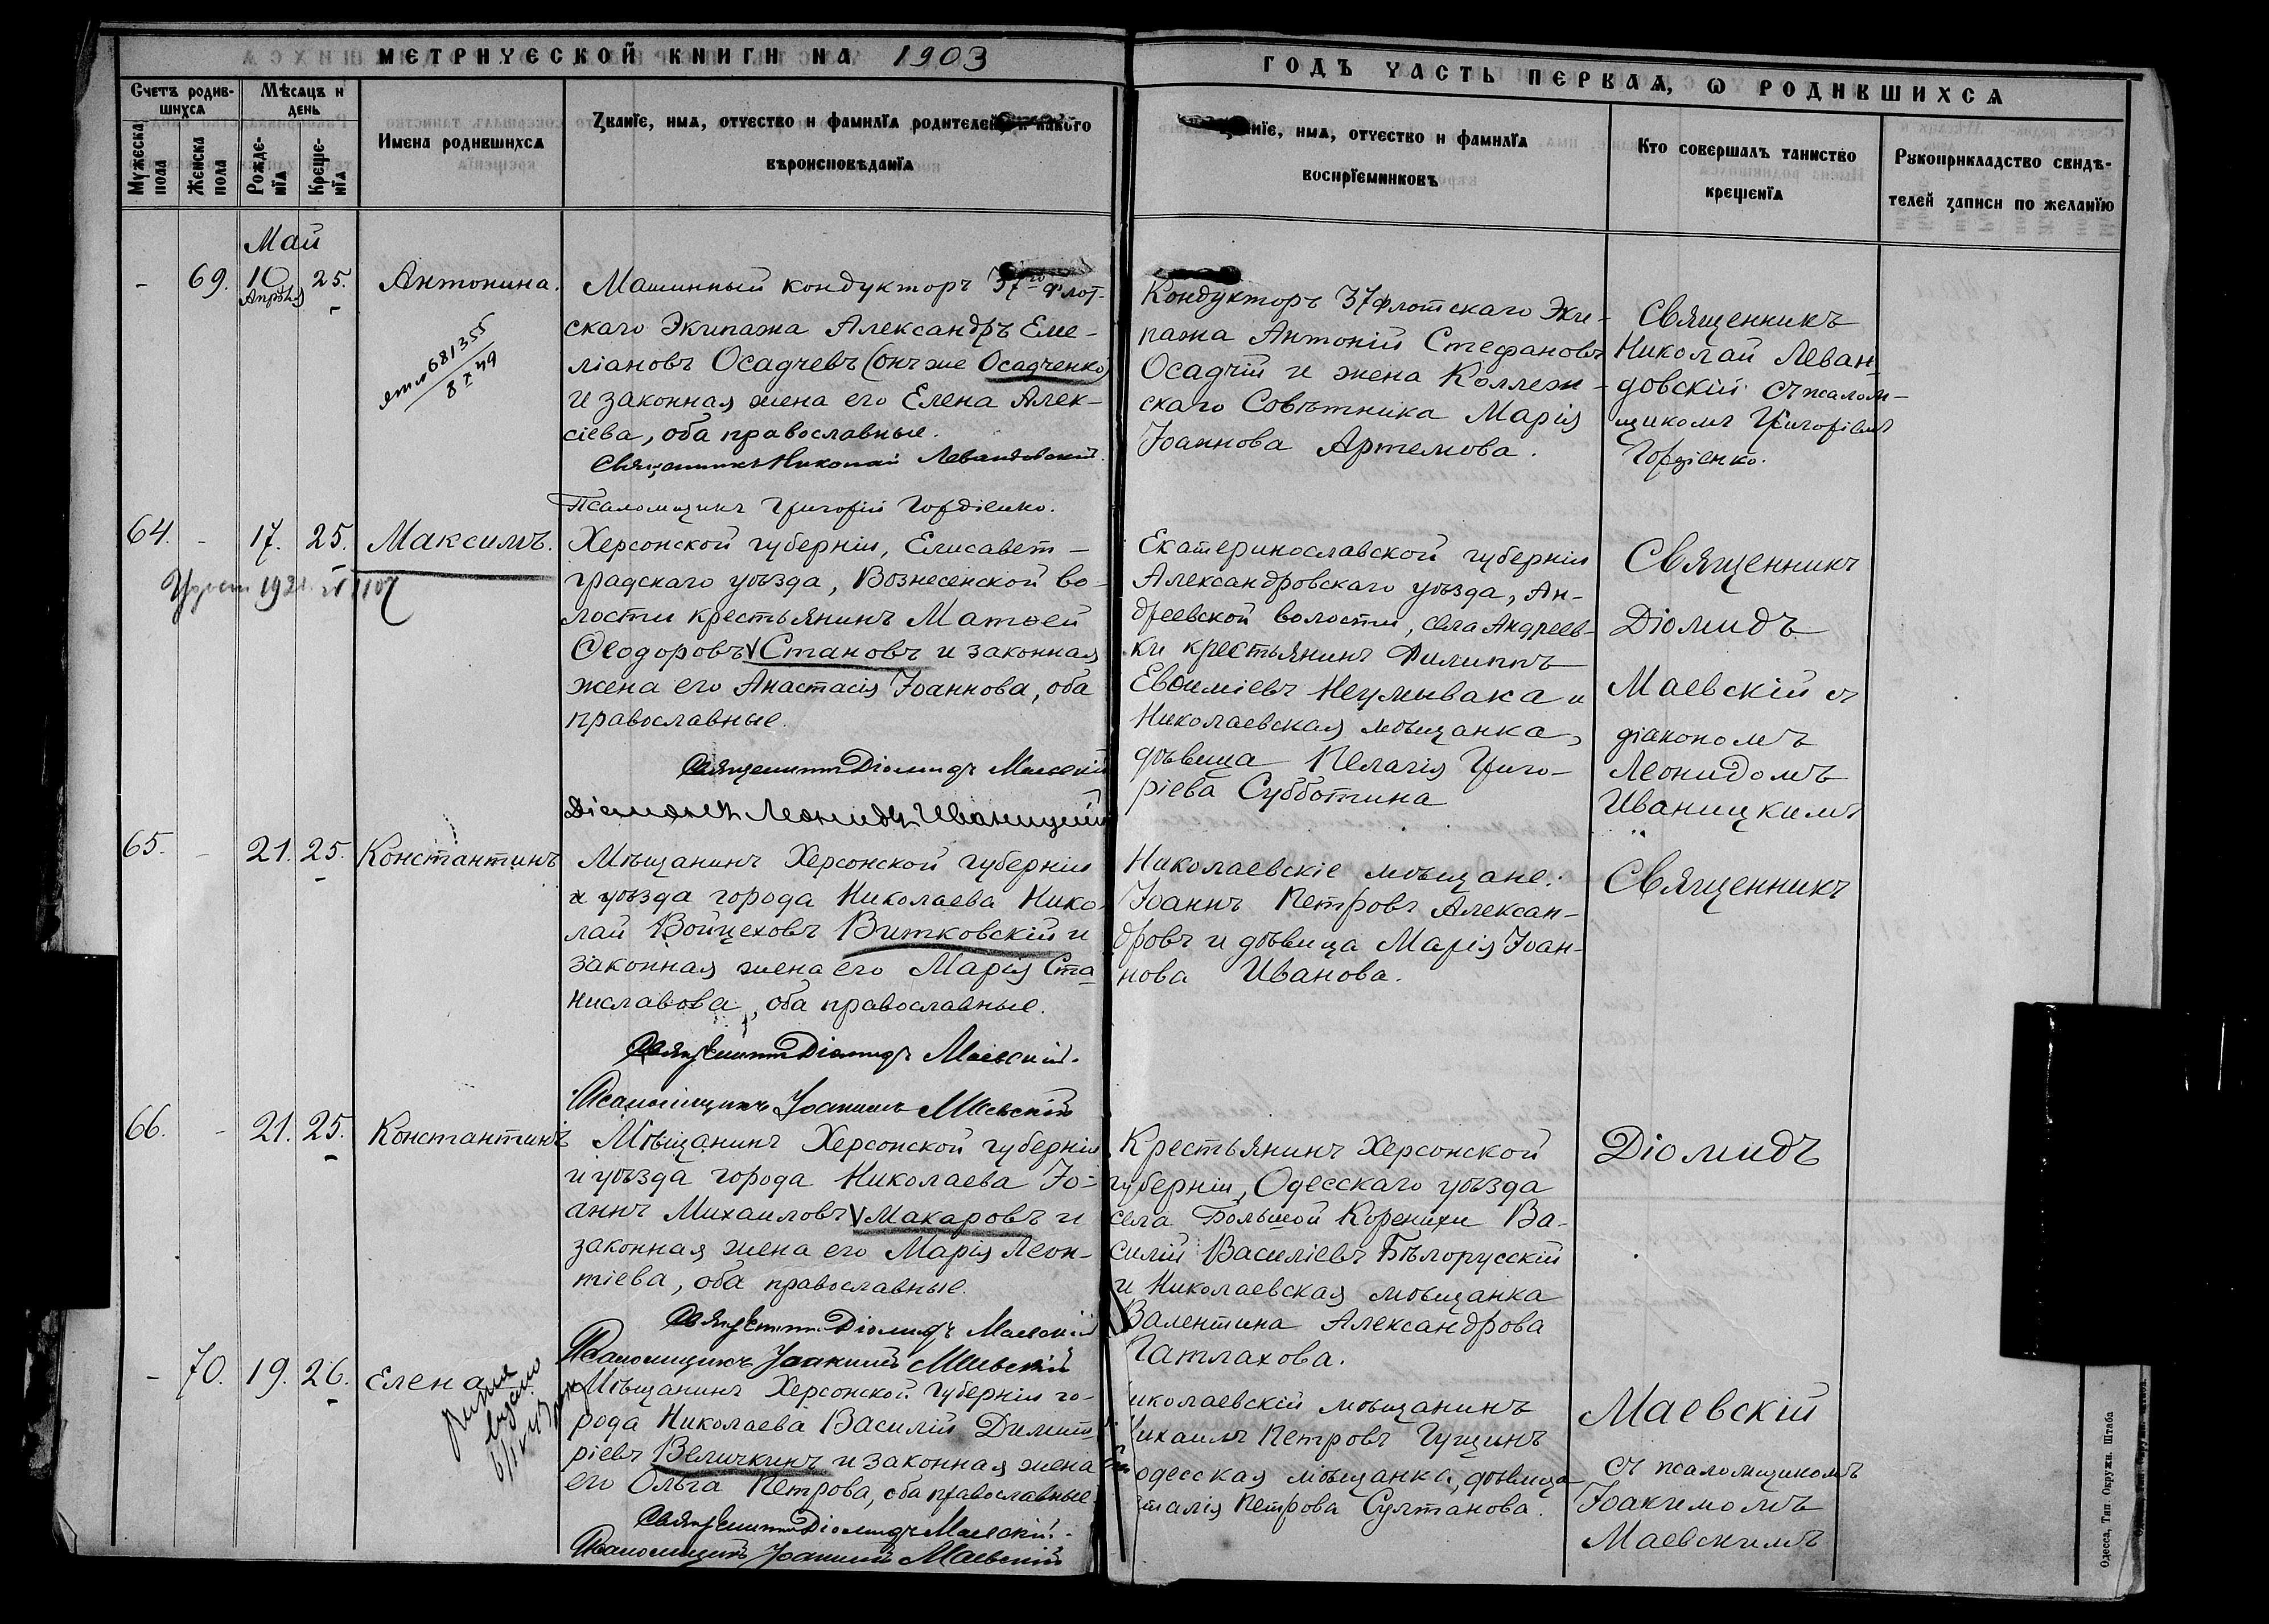 МЕТРИЧЕСКОЙ КНИГИ НА 1903
Счетъ родив-
шихся
Мѣсяцъ и
день
Мужеска
пола
Женска
пола
Рожде-
нія
Креще-
нія
Имена родившихся
Званіе, имя, отчество и фамилія родителей, и какого
вѣроисповѣданія
Май
- 69. 10 25. Антонина.
Апрѣля
681355
8 X 49
Машинный кондукторъ 37го Флот-
скаго Экипажа Александръ Еме-
ліановъ Осадчевъ (онъ же Осадченко)
и законная жена его Елена Алек-
сіева, оба православные.
Священникъ Николай Левандовскій.
Псаломщикъ Григорій Гордіенко.
64. - 17. 25. Максимъ.
Херсонской губерніи, Елисавет-
градскаго уѣзда, Вознесенской во-
лости крестьянинъ Матѳей
Ѳеодоровъ Становъ и законная
жена его Анастасія Іоаннова, оба
православные.
Священникъ Діомидъ Маевскій
Діаконъ Леонидъ Иваницкій
65. - 21. 25. Константинъ
Мѣщанинъ Херсонской губерніи
и уѣзда города Николаева Нико-
лай Войцеховъ Витковскій и
законная жена его Марія Ста-
ниславова, оба православные.
Священникъ Діомидъ Маевскій.
Псаломщикъ Іоакимъ Маевскій
66. - 21. 25. Константинъ
Мѣщанинъ Херсонской губерніи
и уѣзда города Николаева Іо-
аннъ Михаиловъ Макаровъ и
законная жена его Марія Леон-
тіева, оба православные.
Священникъ Діомидъ Маевскій
Псаломщикъ Іоакимъ Маевскій
- 70. 19. 26. Елена
Мѣщанинъ Херсонской губерніи го-
рода Николаева Василій Димит-
ріевъ Величкинъ и законная жена
его Ольга Петрова, оба православные.
Священникъ Діомидъ Маевскій.
Псаломщикъ Іоакимъ Маевскій
ГОДЪ ЧАСТЬ ПЕРВАЯ, Ѡ РОДИВШИХСЯ
Званіе, имя, отчество и фамилія
воспріемниковъ
Кто совершалъ таинство
крещенія
Рукоприкладство свидѣ-
телей записи по желанію
Кондукторъ 37 Флотскаго Эки-
пажа Антоній Стефановъ
Осадчій и жена Коллеж-
скаго Совѣтника Марія
Іоаннова Артемова.
Священникъ
Николай Леван-
довскій съ псалом-
щикомъ Григоріемъ
Гордіенко.
Екатеринославской губерніи
Александровскаго уѣзда, Ан-
дреевской волости, села Андреев-
ки крестьянинъ Филиппъ
Евѳиміевъ Неумывака и
Николаевская мѣщанка,
дѣвица Пелагія Григо-
ріева Субботина
Священникъ
Діомидъ
Маевскій съ
діакономъ
Леонидомъ
Иваницкимъ
Николаевскіе мѣщане:
Іоаннъ Петровъ Алексан-
дровъ и дѣвица Марія Іоан-
нова Иванова.
Священникъ
Крестьянинъ Херсонской
губерніи, Одесскаго уѣзда
села Большой Коренихи Ва-
силій Василіевъ Бѣлорусскій
и Николаевская мѣщанка
Валентина Александрова
Гатлахова.
Діомидъ
иколаевскій мѣщанинъ
ихаилъ Петровъ Гущинъ
одесская мѣщанка, дѣвица
талія Петрова Султанова.
Маевскій
съ псаломщикомъ
Іоакимомъ
Маевскимъ
Одесса, Тип. Окружн. Штаба